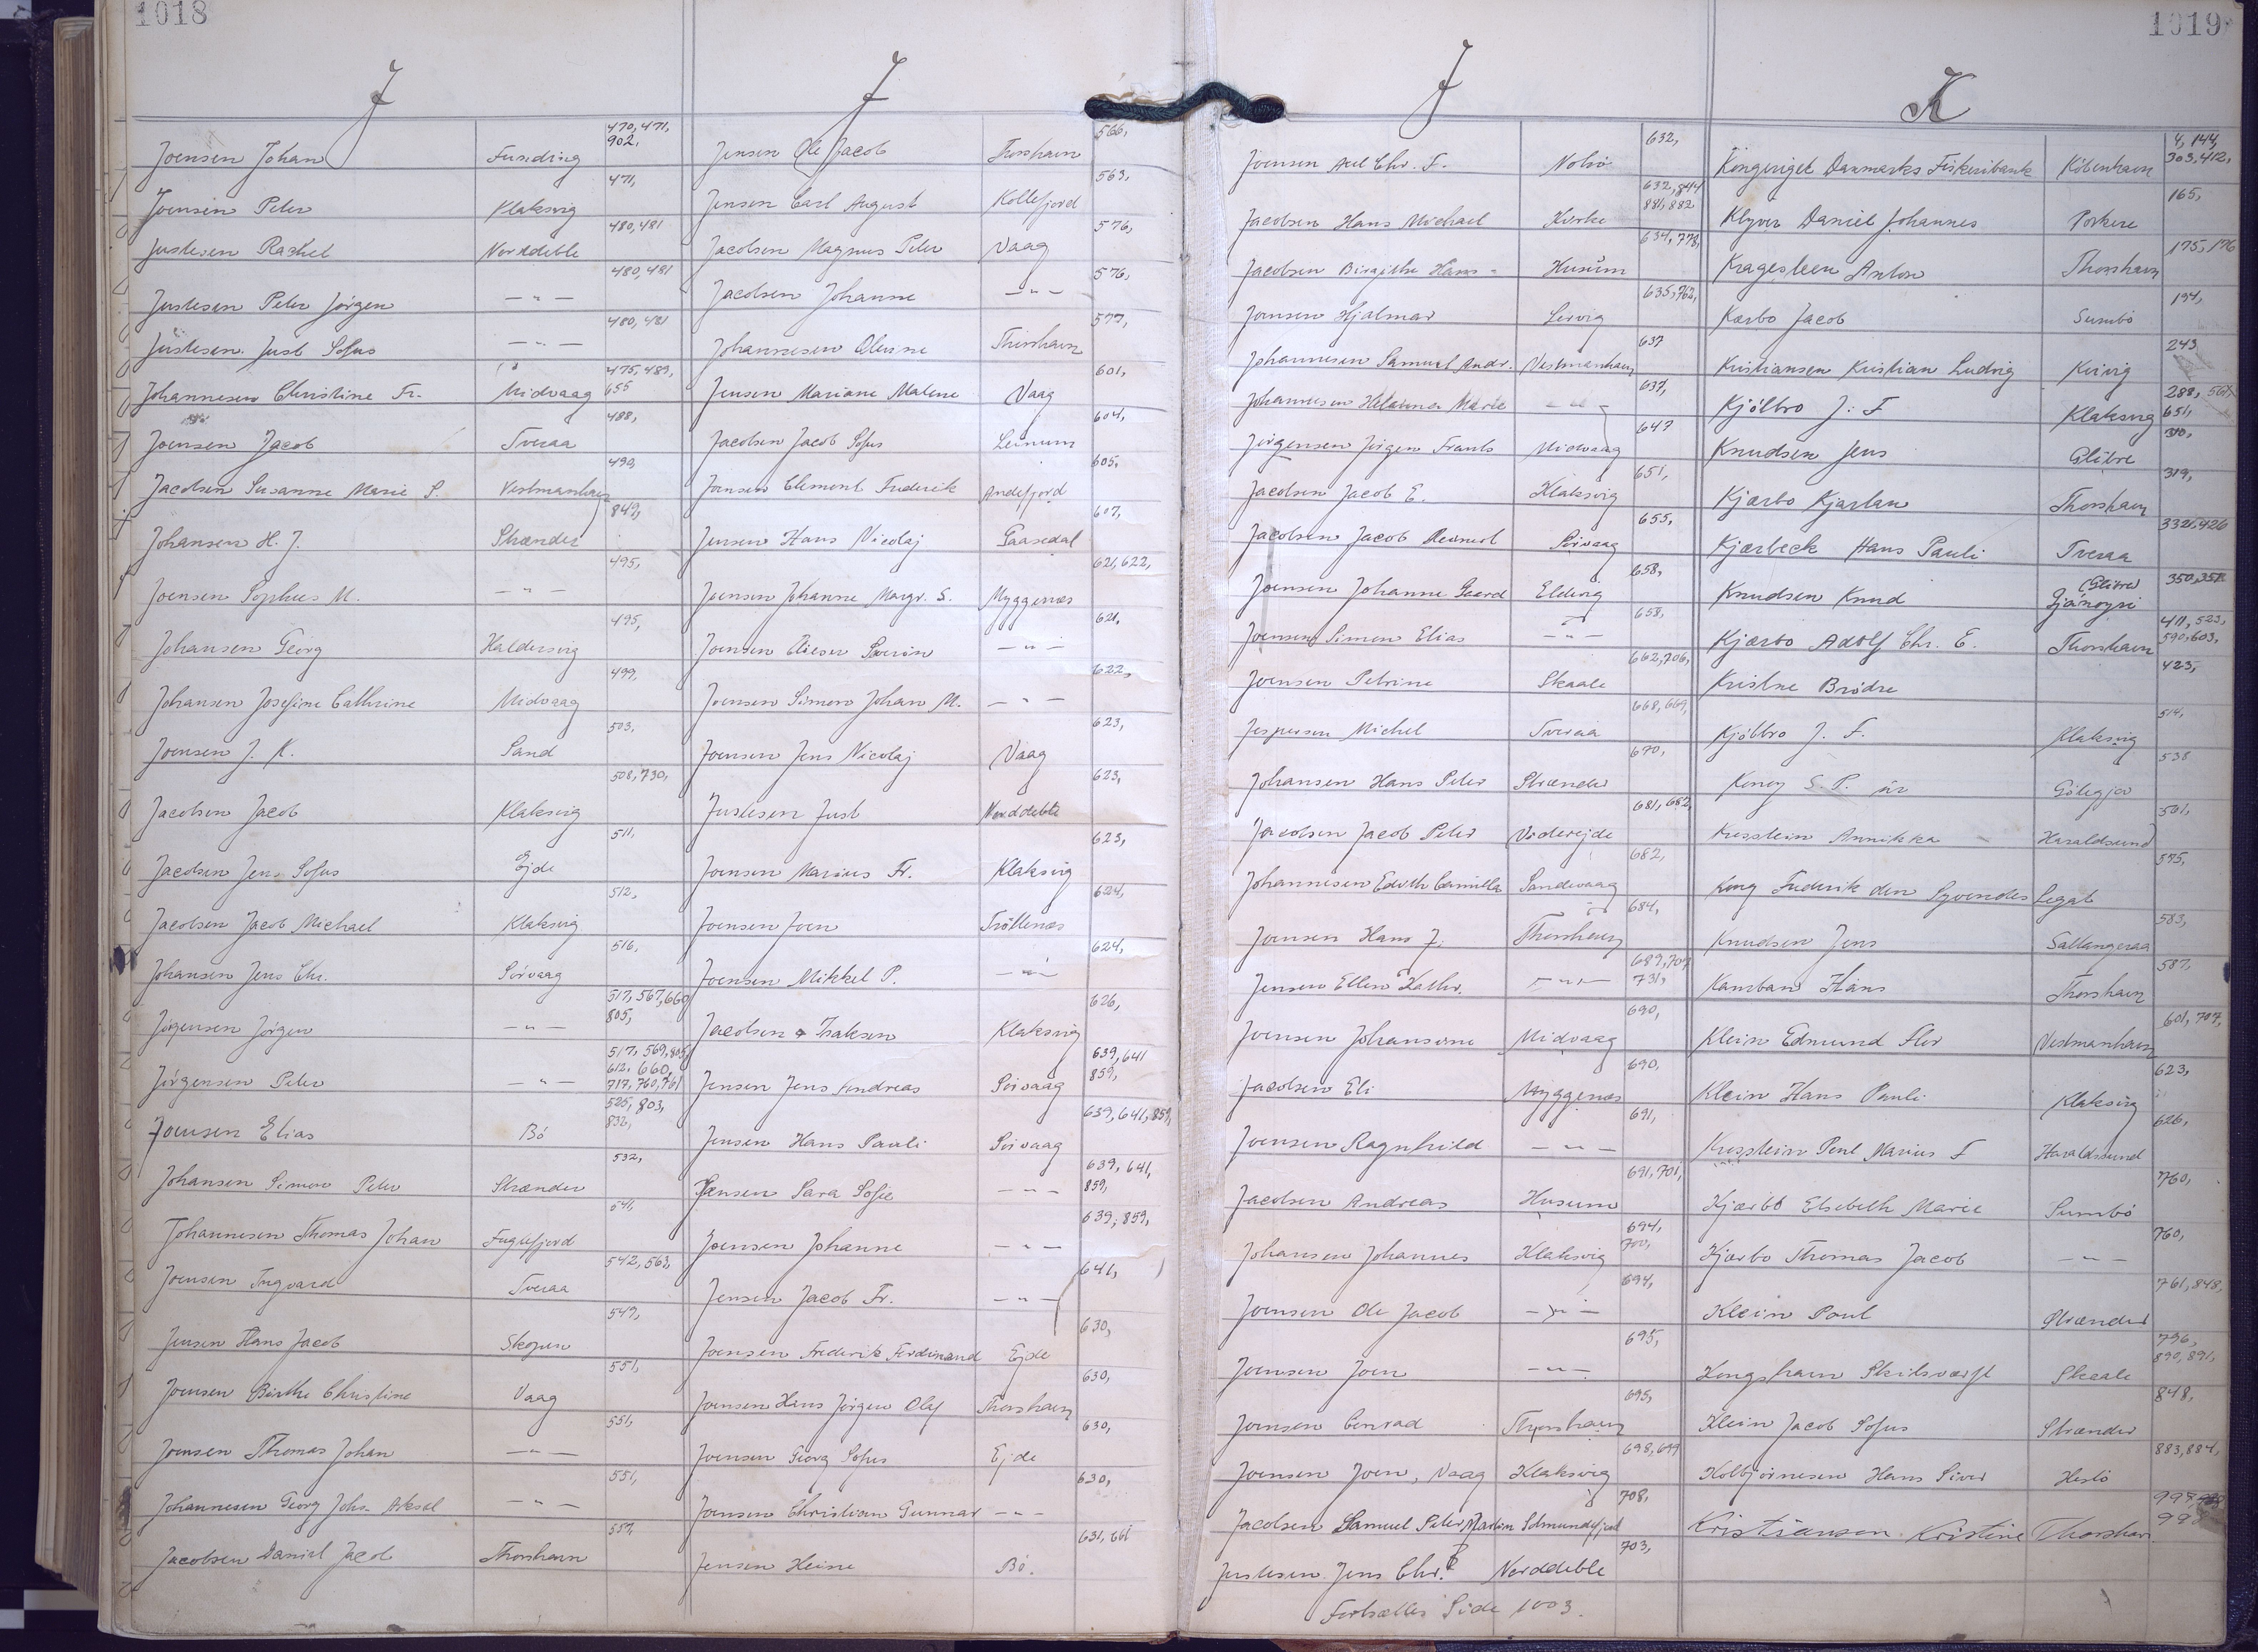 1018
J
Joensen Johan Funding 470, 471, 902,
Joensen Peter Klaksvig 471,
Justesen Rachel Norddeble 480, 481
Justesen Peter Jörgen — " — 480, 481
Justesen Just Sofus — " — 480, 481
Johannesen Christine Fr. Midvaag 475, 489, 655
Joensen Jacob Tveraa 488,
Jacobsen Susanne Marie S. Vestmanhavn 490,
Johansen H. J. Strænder 849,
Joensen Sophus M. — " — 495,
Johansen Georg Haldersvig 495,
Johansen Josefine Cathrine Midvaag 499,
Joensen J. K. Sand 503,
Jacobsen Jacob Klaksvig 508, 730,
Jacobsen Jens Sofus Ejde 511,
Jacobsen Jacob Michael Klaksvig 512,
Johansen Jens Chr. Sörvaag 516,
Jörgensen Jörgen — " — 517, 567, 660, 805,
Jörgensen Peter — " — 517, 569, 805, 612, 660, 717, 760, 761
Joensen Elias Bö 525, 803, 832,
Johansen Simon Peter Strænder 532,
Johannesen Thomas Johan Fuglefjord 541,
Joensen Ingvard Tveraa 542, 563,
Jensen Hans Jacob Skopun 549,
Joensen Birthe Christine Vaag 551,
Joensen Thomas Johan — " — 551,
Johannesen Georg Johs. Aksel — " — 551,
Jacobsen Daniel Jacob Thorshavn 557,
J
Jensen Ole Jacob Thorshavn 566,
Jensen Carl August Kollefjord 563,
Jacobsen Magnus Peter Vaag 576,
Jacobsen Johanne — " — 576,
Johannesen Olevine Thorshavn 577,
Jensen Mariane Malene Vaag 601,
Jacobsen Jacob Sofus Leinum 604,
Joensen Clement Frederik Andefjord 605,
Jensen Hans Nicolaj Gaasedal 607,
Joensen Johanne Margr. S. Myggenæs 621, 622,
Joensen Elieser Severin — " — 621,
Joensen Simon Johan M. — " — 622,
Joensen Jens Nicolaj Vaag 623,
Justesen Just Norddeble 623,
Joensen Marius Fr. Klaksvig 623,
Joensen Joen Tröllenæs 624,
Joensen Mikkel P. — " — 624,
Jacobsen & Isaksen Klaksvig 626,
Jensen Jens Andreas Sörvaag 639, 641 859,
Jensen Hans Pauli Sörvaag 639, 641, 859,
Jensen Sara Sofie — " — 639, 641, 859,
Joensen Johanne — " — 639, 859,
Jensen Jacob Fr. — " — 641,
Joensen Frederik Ferdinand Ejde 630,
Joensen Hans Jörgen Olaf Thorshavn 630,
Joensen Georg Sofus Ejde 630,
Joensen Christian Gunnar — " — 630,
Jensen Heine Bö. 631, 661
1019
J
Joensen Axel Chr. F. Nolsö 632,
Jacobsen Hans Michael Kirke 632, 844 881, 882
Jacobsen Birgithe Hans- Husum 634, 778,
Joensen Hjalmar Lervig 635, 762,
Johannesen Samuel Andr. Vestmanhavn 637
Johannesen Marie — " — 637,
Jörgensen Jörgen Frants Midvaag 647
Jacobsen Jacob E. Klaksvig 651,
Jacobsen Jacob Sörvaag 655,
Joensen Johanne Gaard Elduvig 658,
Joensen Simon Elias — " — 658,
Joensen Petrine Skaale 662, 706,
Jespersen Michel Tveraa 668, 669,
Johansen Hans Peter Strænder 670,
Jacobsen Jacob Peter Viderejde 681, 682,
Johannesen Edvith Camilla Sandevaag 682,
Joensen Hans J. Thorshavn 684,
Jensen Ellen Kathr. — " — 689, 707 731,
Joensen Johansine Midvaag 690,
Jacobsen Eli Myggenæs 690,
Joensen Ragnhild — " — 691,
Jacobsen Andreas Husum 691, 701,
Johansen Johannes Klaksvig 694, 700,
Joensen Ole Jacob — " — 694,
Joensen Joen — " — 695,
Joensen Conrad Thorshavn 695,
Joensen Joen, Vaag Klaksvig 698, 699
Jacobsen Samuel Peter Martin 708,
Justesen Jens Chr. Norddeble 703,
Fortsættes Side 1003.
K
Kongeriget Danmarks Fiskeribank Köbenhavn 4, 144, 303, 412,
Klyver Daniel Johannes Porkere 165,
Kragesteen Anton Thorshavn 175, 176
Kærbo Jacob Sumbö 194,
Kristiansen Kristian Ludvig Kvivig 243
Kjölbro J. F Klaksvig 288, 567, 651,
Knudsen Jens Glibre 310,
Kjærbo Kjartan Thorshavn 319,
Kjærbeck Hans Pauli Tveraa 332, 426
Knudsen Knud (Glibre) Gjánoyri 350, 351
Kjærbo Adolf Chr. E. Thorshavn 411, 523, 590, 603,
Kristne Brödre 423,
Kjölbro J. F. Klaksvig 514,
538
Annikka Haraldsund 501,
Kong Frederik den Syvendes Legat 575,
Knudsen Jens Saltangeraa 583,
Kamban Hans Thorshavn 587,
Klein Edmund Vestmanhavn 601, 707,
Klein Hans Pauli Klaksvig 623,
Marius F Haraldssund 626,
Kjærbo Elsebeth Marie Sumbö 760,
Kjærbo Thomas Jacob — " — 760,
Klein Poul Strænder 761, 848,
Kongshavn Skibsværft Skaale 796, 890, 891,
Klein Jacob Sofus Strænder 848,
Kolbjörnesen Hans Siver Hestö 883, 884,
Kristiansen Kristine Thorshavn 997, 998